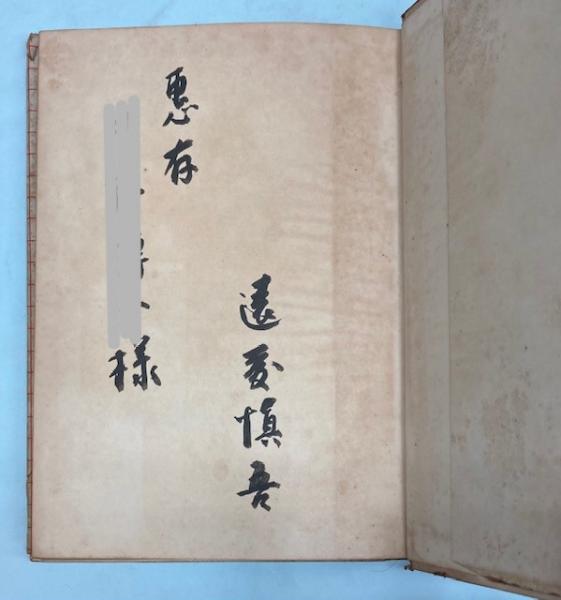 遠藤慎吾
恵存
様